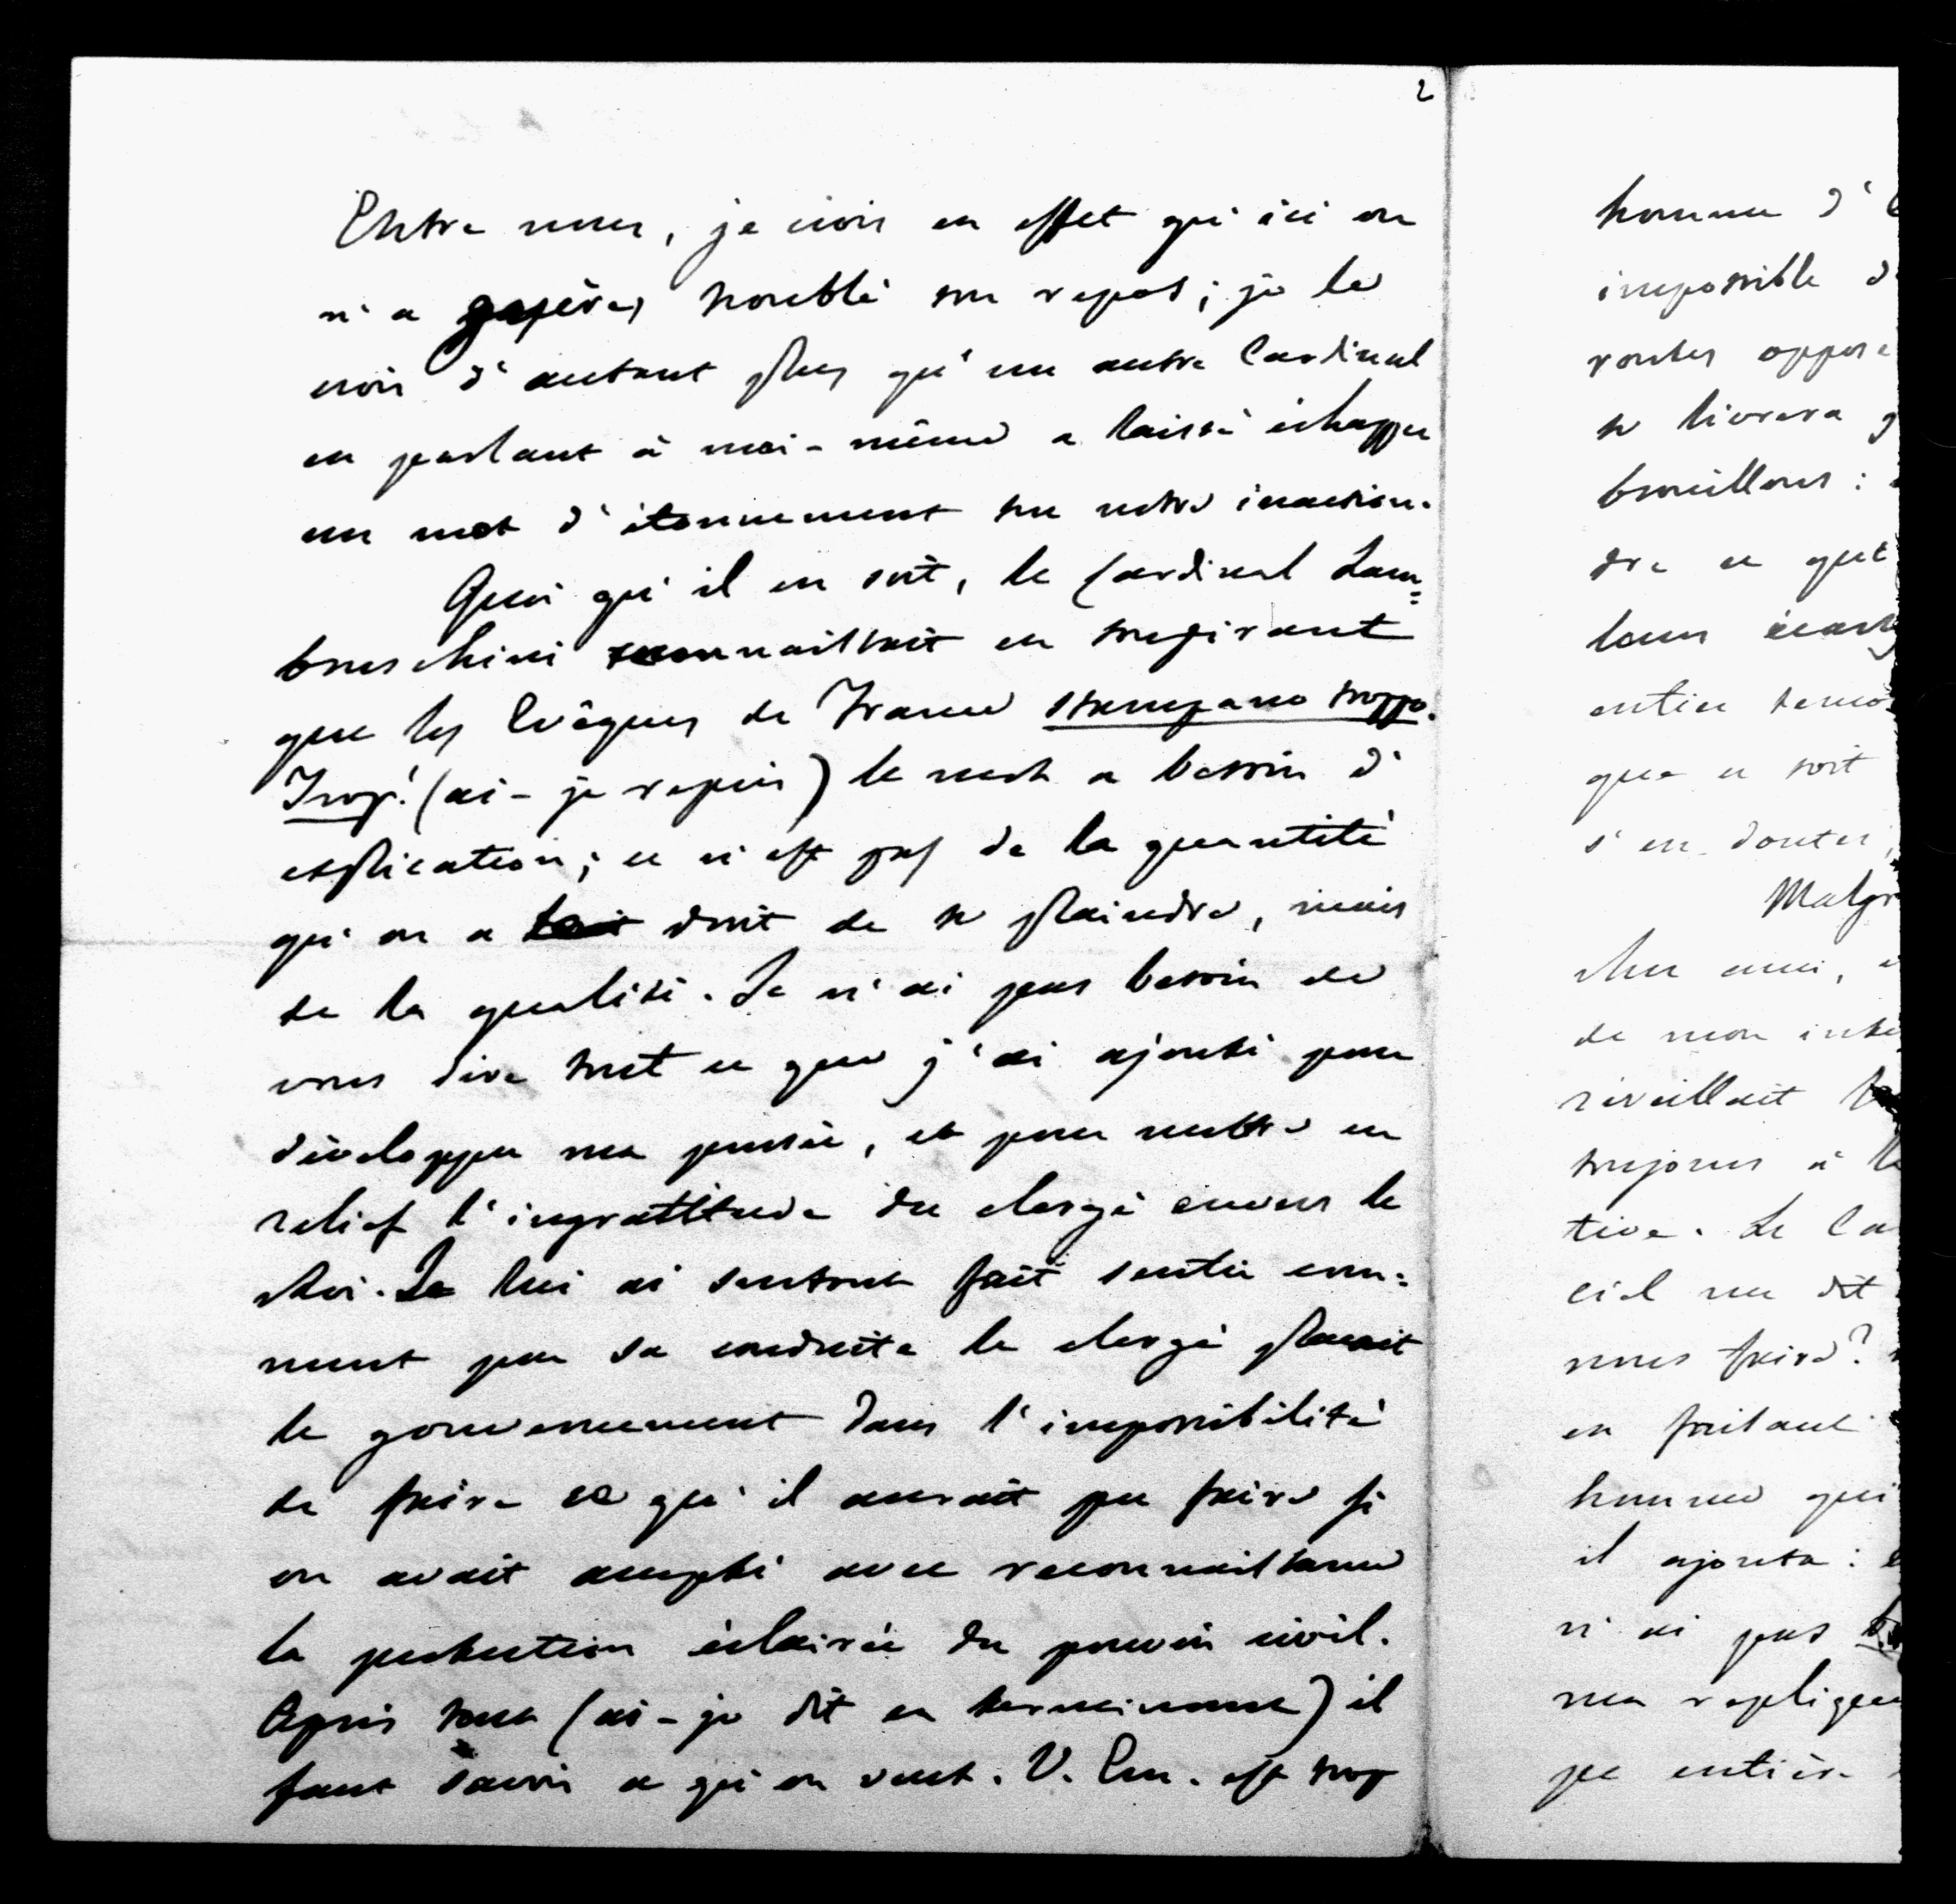 2
Entre nous, je crois en effet qu'ici on
n'a guères troublé son repos; je le
crois d'autant plus qu'un autre Cardinal
en parlant à moi-même a laissé échapper
un mot d'étonnement sur notre inaction.
Quoi qu'il en soit, le Cardinal Lam=
bruschini reconnaissait en soupirant
que les Evêques de France stampano troppo.
Trop! (ai-je repris) le mot a besoin d'
explication; ce n'est pas de la quantité
qu'on a droit de se plaindre, mais
de la qualité. Je n'ai pas besoin de
vous dire tout ce que j'ai ajouté pour
développer ma pensée, et pour mettre en
relief l'ingratitude du clergé envers le
Roi. Je lui ai surtout fait sentir com=
ment par sa conduite le clergé plaçait
le gouvernement dans l'impossibilité
de faire ce qu'il aurait pu faire si
on avait accepté avec reconnaissance
la protection éclairée du pouvoir civil.
Après tout (ai-je dit en terminant) il
faut savoir ce qu'on veut. V. Em. est trop
homme d'
impossible d
voutes oppos
se livrera
brouillons :
dre ce que
leurs
entier
que ce soit
s'en douter,
Malgr
cher ami,
de mon
réveillait
toujours à
tive. Le Ca
ciel me dit
nous faire?
en faisant
homme qui
il ajouta :
n'ai pas
ma
pe entière